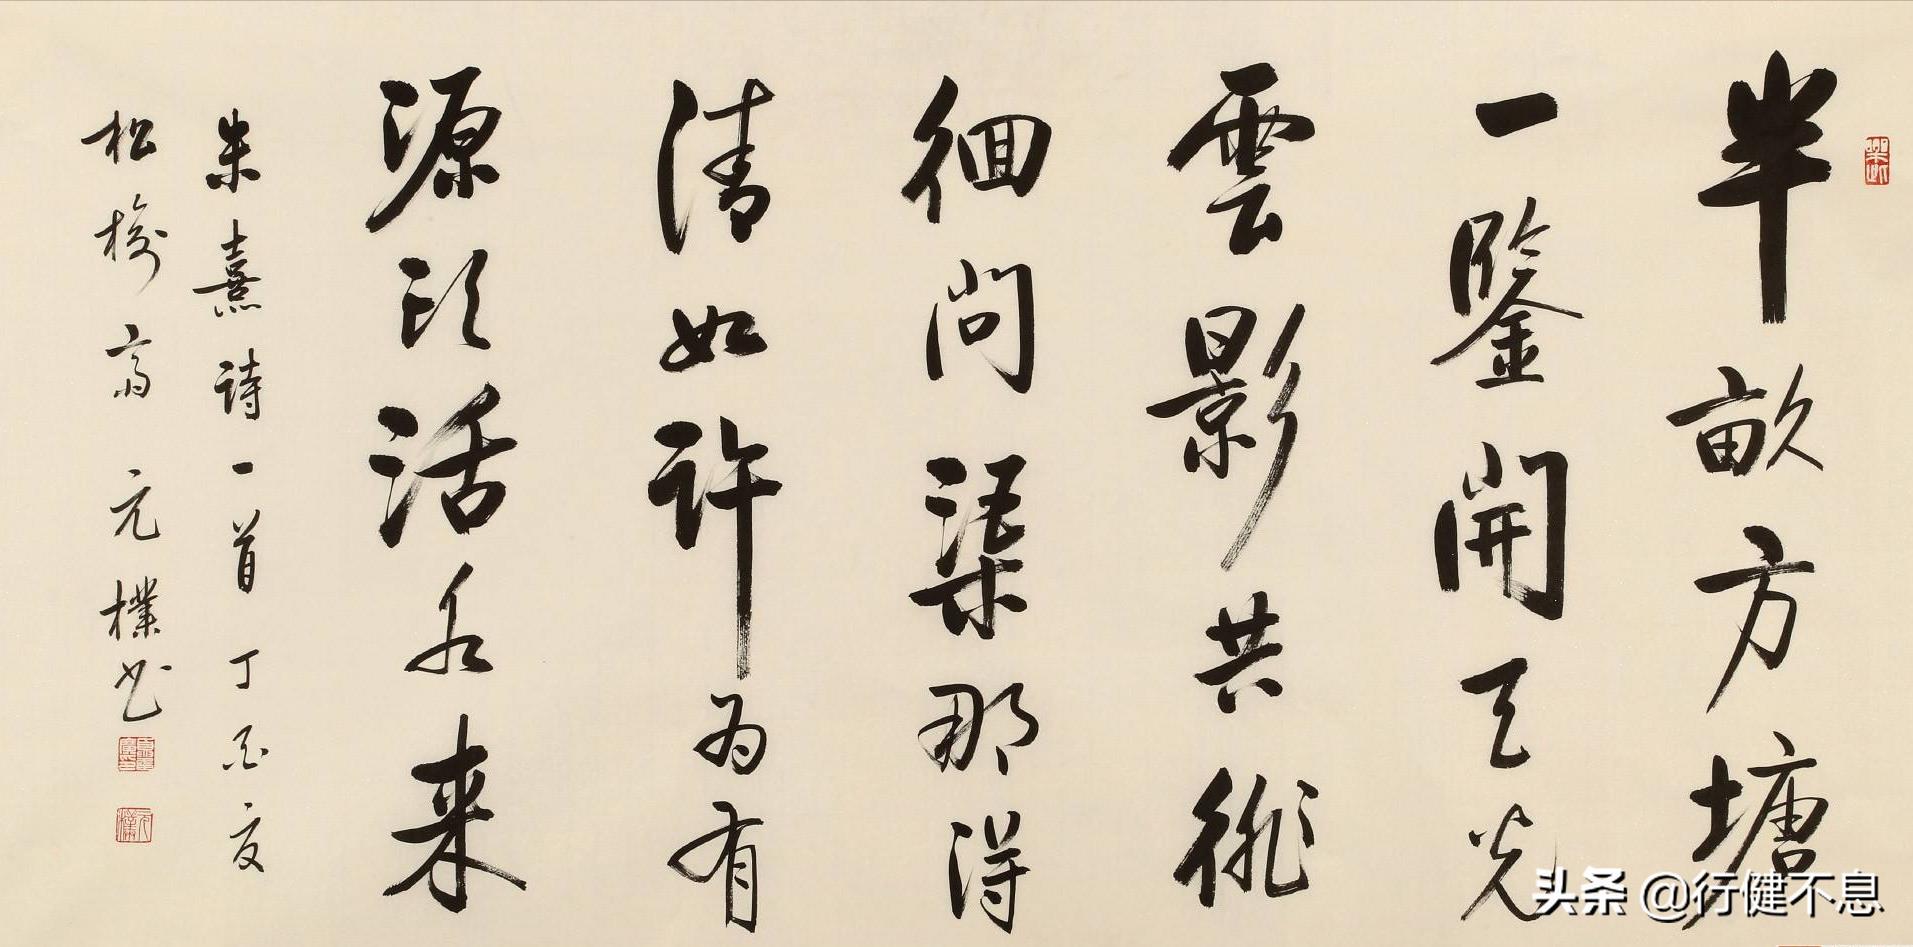 半畝方塘
一鑒開天光
雲影共徘
徊問渠那得
清如許為有
源頭活水来
朱熹詩一首丁酉夏
松梅斋元樸书
头条 @行健不息